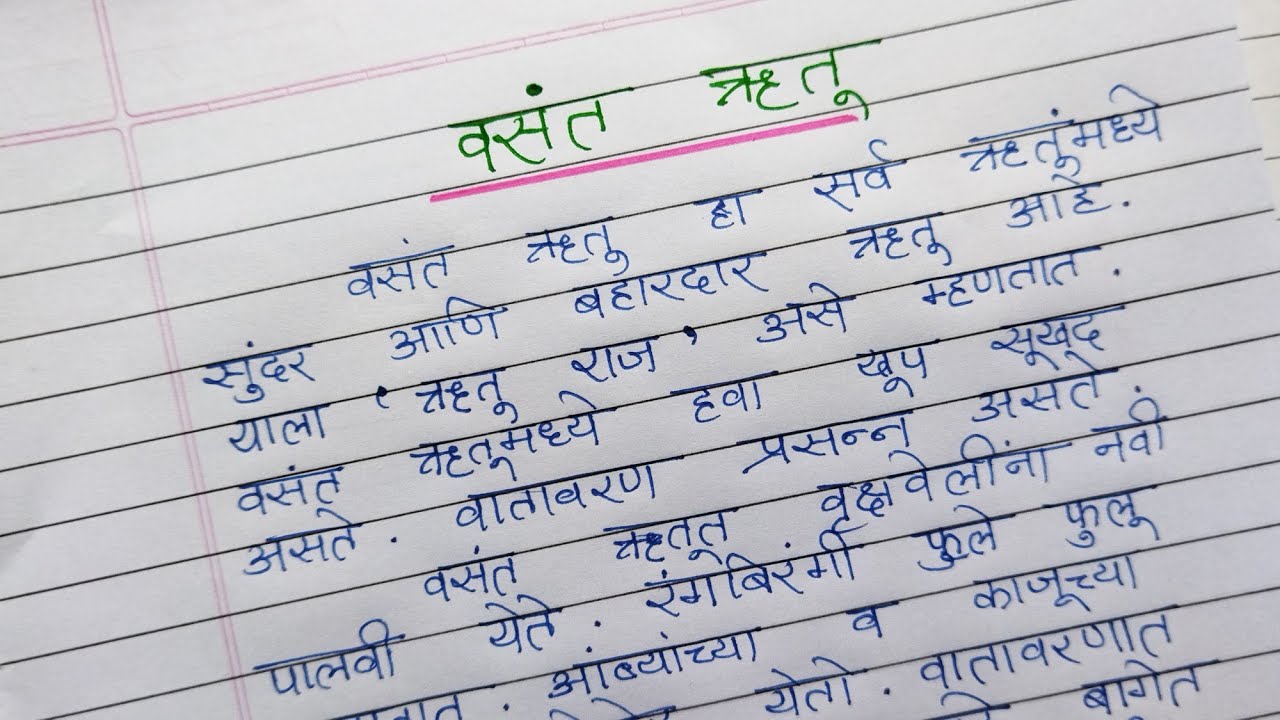 वसंत ऋतू
वसंत ऋतू हा सर्व ऋतूंमध्ये
सुंदर आणि बहारदार ऋतू आहे.
याला ' ऋतू राज ' असे म्हणतात .
वसंत ऋतूमध्ये हवा खूप सूखद
असते . वातावरण प्रसन्न असते .
वसंत ऋतूत वृक्षवेलींना नवी
पालवी येते . रंगबिरंगी फुले फुलू
. आंब्यांच्या व काजूच्या
येतो . वातावरणात
बागेत